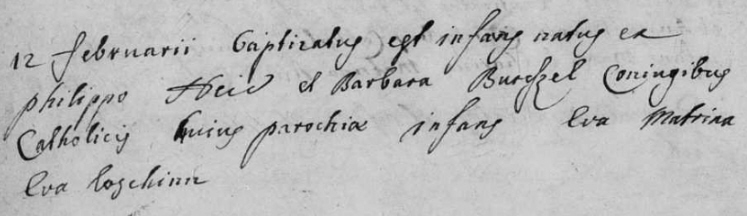 12 februarii baptizatus est infans natus ex
philippo et Barbara Coniugibus
Catholicis huius parochiæ infans Eva Matrina
Eva loschinn